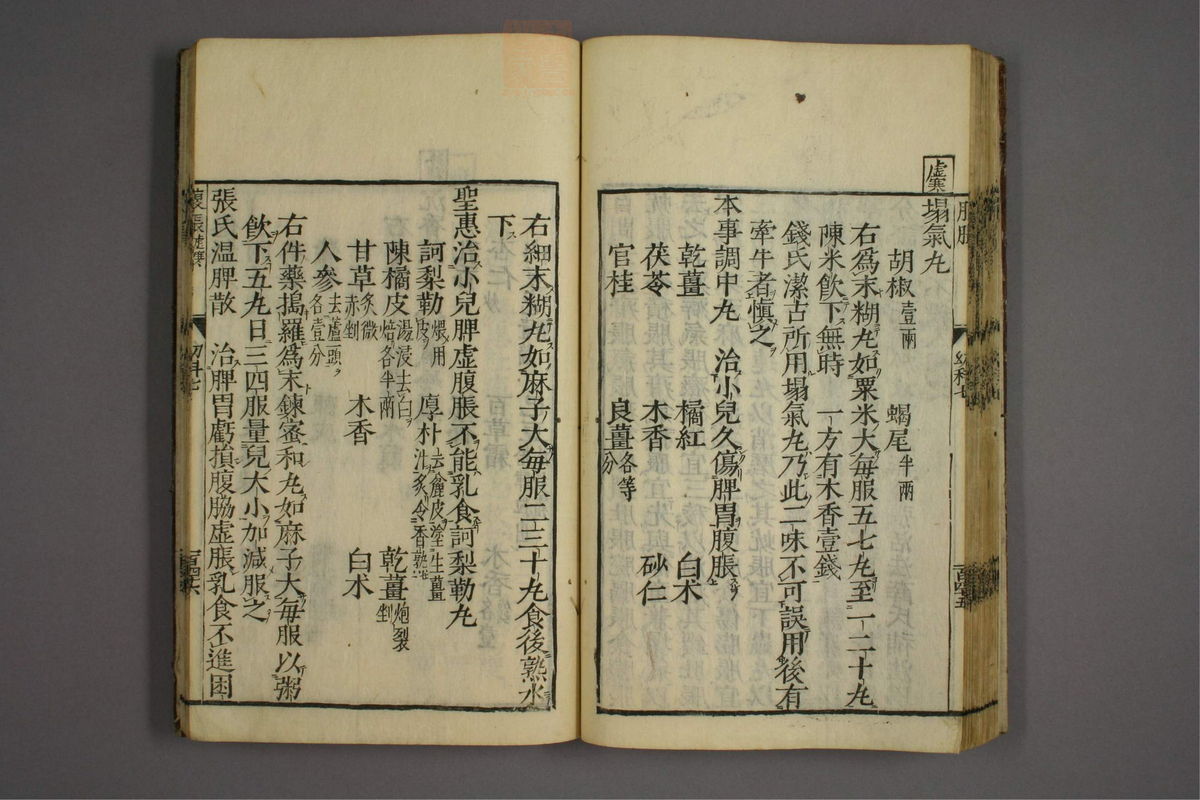 虛寒
塌氣丸
胡椒壹兩　蝎尾半兩
右爲末糊丸如粟米大每服五七丸至一二十丸
陳米飲下無時　一方有木香壹錢
錢氏潔古所用塌氣丸乃此二味不可誤用後有
牽牛者愼之
本事調中丸　治小兒久傷脾胃腹脹
乾薑　橘紅　白术
茯苓　木香　砂仁
官桂　良薑各等分
右細末糊丸如麻子大每服二三十丸食後熟水
下
聖惠治小兒脾虛腹脹不能乳食訶梨勒丸
訶梨勒煨用皮　厚朴去麄皮塗生薑汁炙令香熟　乾薑炮裂剉
陳橘皮湯浸去白焙各半兩
甘草炙微赤剉　木香　白术
人參去蘆頭各壹分
右件藥搗羅爲末鍊蜜和丸如麻子大每服以粥
飲下五丸日三四服量兒大小加減服之
張氏温脾散　治脾胃虧損腹脇虛脹乳食不進困
百四十六